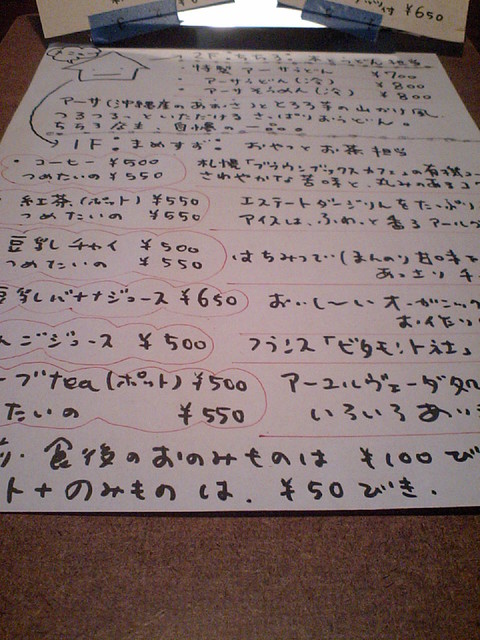 ¥650
2F：ちろる：あさうどん担当
・特製 アーサうどん ¥700
・アーサうどん（冷） ¥800
・アーサそうめん（冷） ¥800
アーサ（沖縄産のあおさ）ととろろ芋の山かけ風
つるつるっといただける さっぱりおうどん。
自慢の一品。
1F：まめすず：おやつとお茶担当
・コーヒー ¥500
つめたいの ¥550
札幌「ブラウンブックスカフェ」の有機コー
さわやかな苦味と、丸みのあるコ
紅茶（ポット） ¥550
つめたいの ¥550
エステートダージリンをたっぷり
アイスは、ふわっと香るアールグ
豆乳チャイ ¥500
つめたいの ¥550
はちみつでい（まんのり甘味で
あっさりチ
豆乳バナナジュース ¥650
おいし〜いオーガニック
んごジュース ¥500
フランス「ビタモント社」
ーブtea（ポット） ¥500
たいの ¥550
アーユルヴェーダ
いろいろあり
前・食後のおのみものは ¥100び
ト+のみものは、¥50びき．